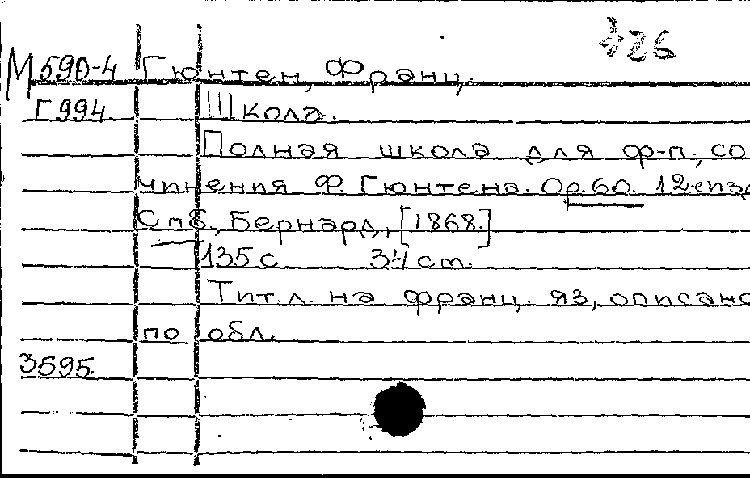 726
М 590-4 Гюнтен, Франц.
Г994. Школа.
Полная школа для ф-п., со
чинения Ф. Гюнтена. Op. 60. 12-е изд
Спб., Бернард, [1868.]
135 с 34 cm.
Тит. л. на франц. яз, описано
по обл.
3595.